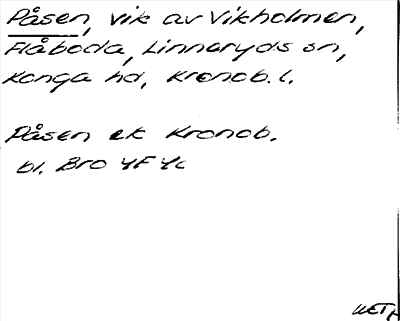 Påsen, vik av Vikholmen,
Flåboda, Linneryds sn,
Konga hd, Kronob. l.
Påsen ek Kronob.
bl. Bro 4F 4c